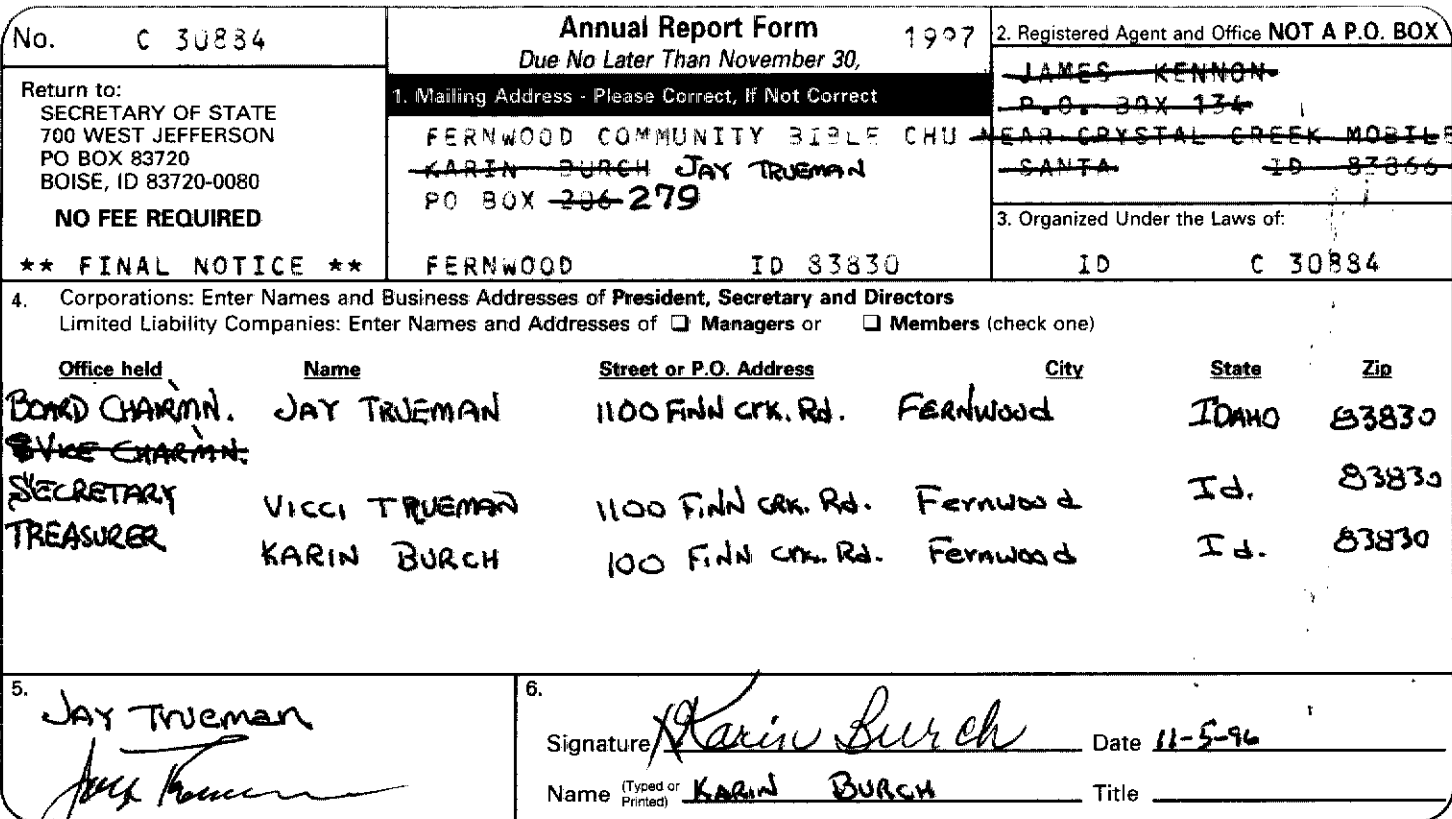 No. C 30884
Return to:
SECRETARY OF STATE
700 WEST JEFFERSON
PO BOX 83720
BOISE, ID 83720-0080
NO FEE REQUIRED
** FINAL NOTICE **
Annual Report Form 1997
Due No Later Than November 30,
1. Mailing Address - Please Correct, If Not Correct
FERNWOOD COMMUNITY BIBLE CHU
KARIN BURCH JAY TRUEMAN
PO BOX 206 279
FERNWOOD ID 83830
2. Registered Agent and Office NOT A P.O. BOX
JAMES KENNON
P.O. BOX 134
NEAR CRYSTAL CREEK MOBILE
SANTA ID 83866
3. Organized Under the Laws of:
ID C 30884
4. Corporations: Enter Names and Business Addresses of President, Secretary and Directors
Limited Liability Companies: Enter Names and Addresses of ❑ Managers or ❑ Members (check one)
Office held Name Street or P.O. Address City State Zip
BOARD CHAIRMN. JAY TRUEMAN 1100 FINN CRK. Rd. FERNWOOD IDAHO 83830
VICE CHARMN.
SECRETARY VICCI TRUEMAN 1100 FINN CRK. Rd. Fernwood Id. 83830
TREASURER KARIN BURCH 100 FINN CRK. Rd. Fernwood Id. 83830
5.
JAY Trueman
Jay Trueman
6.
Signature Karin Burch Date 11-5-96
Name (Typed or Printed) KARIN BURCH Title